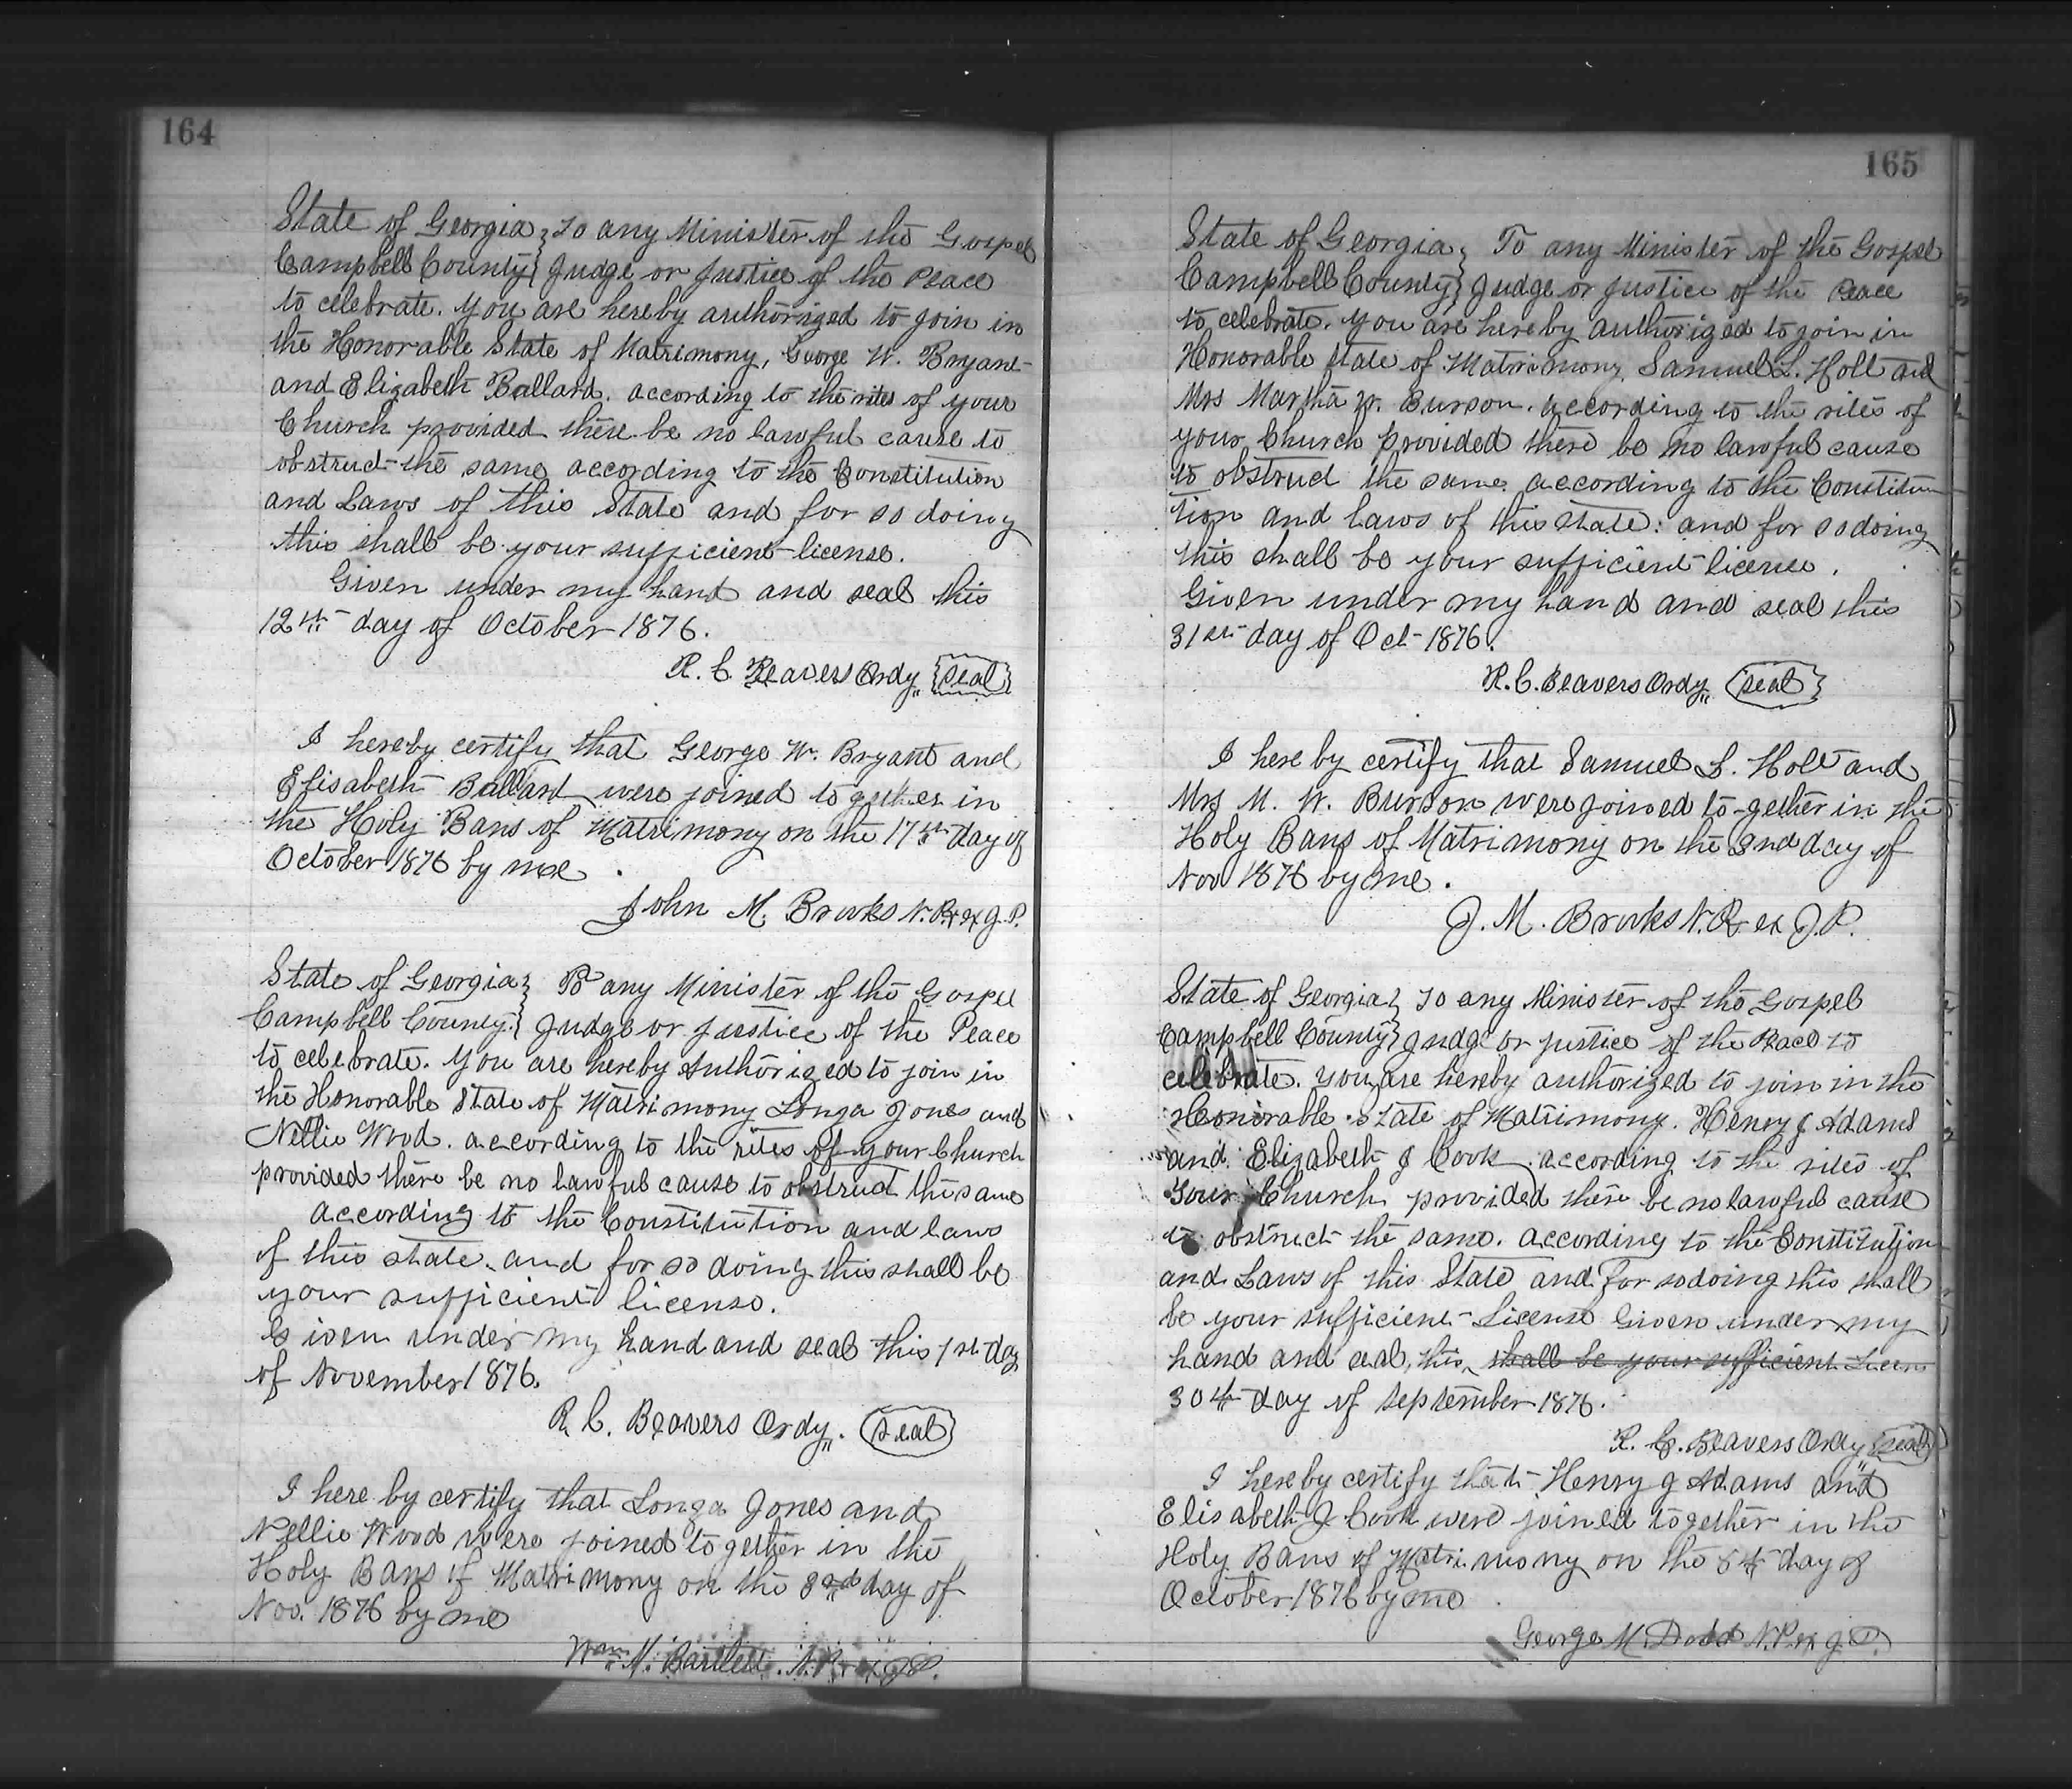 164
State of Georgia } To any Minister of the Gospel
Campbell County } Judge or Justice of the Peace
to celebrate. You are hereby authorized to join in
the Honorable State of Matrimony, George W. Bryant
and Elizabeth Ballard. according to the rites of your
Church provided there be no lawful cause to
obstruct the same according to the Constitution
and Laws of this State and for so doing
this shall be your sufficient license.
Given under my hand and seal this
12th day of October 1876.
R. C. Beavers Ordy {Seal}
I hereby certify that George W. Bryant and
Elisabeth Ballard were joined together in
the Holy Bans of Matrimony on the 17th day of
October 1876 by me.
John M. Brooks N. P. & ex J. P.
State of Georgia } To any Minister of the Gospel
Campbell County. } Judge or Justice of the Peace
to celebrate. You are hereby Authorized to join in
the Honorable State of Matrimony Longa Jones and
Nellie Wood. according to the rites of your Church
provided there be no lawful cause to obstruct the same
according to the Constitution and laws
of this state. and for so doing this shall be
your sufficient license.
Given under my hand and seal this 1st day
of November 1876.
R. C. Beavers Ordy. (Seal)
I here by certify that Longa Jones and
Nellie Wood were joined together in the
Holy Bans of Matrimony on the day of
Nov. 1876 by me
Wm. M. Bartlett. N. P. & ex J P.
165
State of Georgia } To any Minister of the Gospel
Campbell County } Judge or Justice of the Peace
to celebrate. You are hereby authorized to join in
Honorable State of Matrimony, Samuel L. Holt and
Mrs Martha W. Burson. according to the rites of
your Church provided there be no lawful cause
to obstruct the same. according to the Constitu
tion and laws of this state: and for so doing
this shall be your sufficient license.
Given under my hand and seal this
31st day of Oct 1876.
R. C. Beavers Ordy (Seal)
I here by certify that Samuel L. Holt and
Mrs M. W. Burson were joined to-gether in the
Holy Bans of Matrimony on the 2nd day of
Nov 1876 by me.
J. M. Brooks N. P. & ex J. P.
State of Georgia } To any Minister of the Gospel
Campbell County } Judge or Justice of the Peace to
celebrate. You are hereby authorized to join in the
Honorable State of Matrimony. Henry J Adams
and Elizabeth J Cook according to the rites of
Your Church provided there be no lawful cause
to obstruct the same. according to the Constitution
and Laws of this State and for so doing this shall
be your sufficient License Given under my
hand and seal, this shall be your sufficient Licens
30th day of September 1876.
R. C. Beavers Ordy (Seal)
I hereby certify that Henry J Adams and
Elisabeth J Cook were joined together in the
Holy Bans of Matrimony on the 5th day of
October 1876 by me
George M. Dodd N. P. & ex J. P.